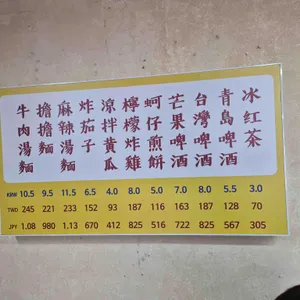 牛肉湯麵
擔擔麵
麻辣湯麵
炸茄子
涼拌黃瓜
檸檬炸雞
蚵仔煎餅
芒果啤酒
台灣啤酒
青島啤酒
冰红茶
KRW 10.5 9.5 11.5 6.5 4.0 8.0 5.0 7.0 8.0 5.5 3.0
TWD 245 221 233 152 93 187 116 163 187 128 70
JPY 1.08 980 1.13 670 412 825 516 722 825 567 305